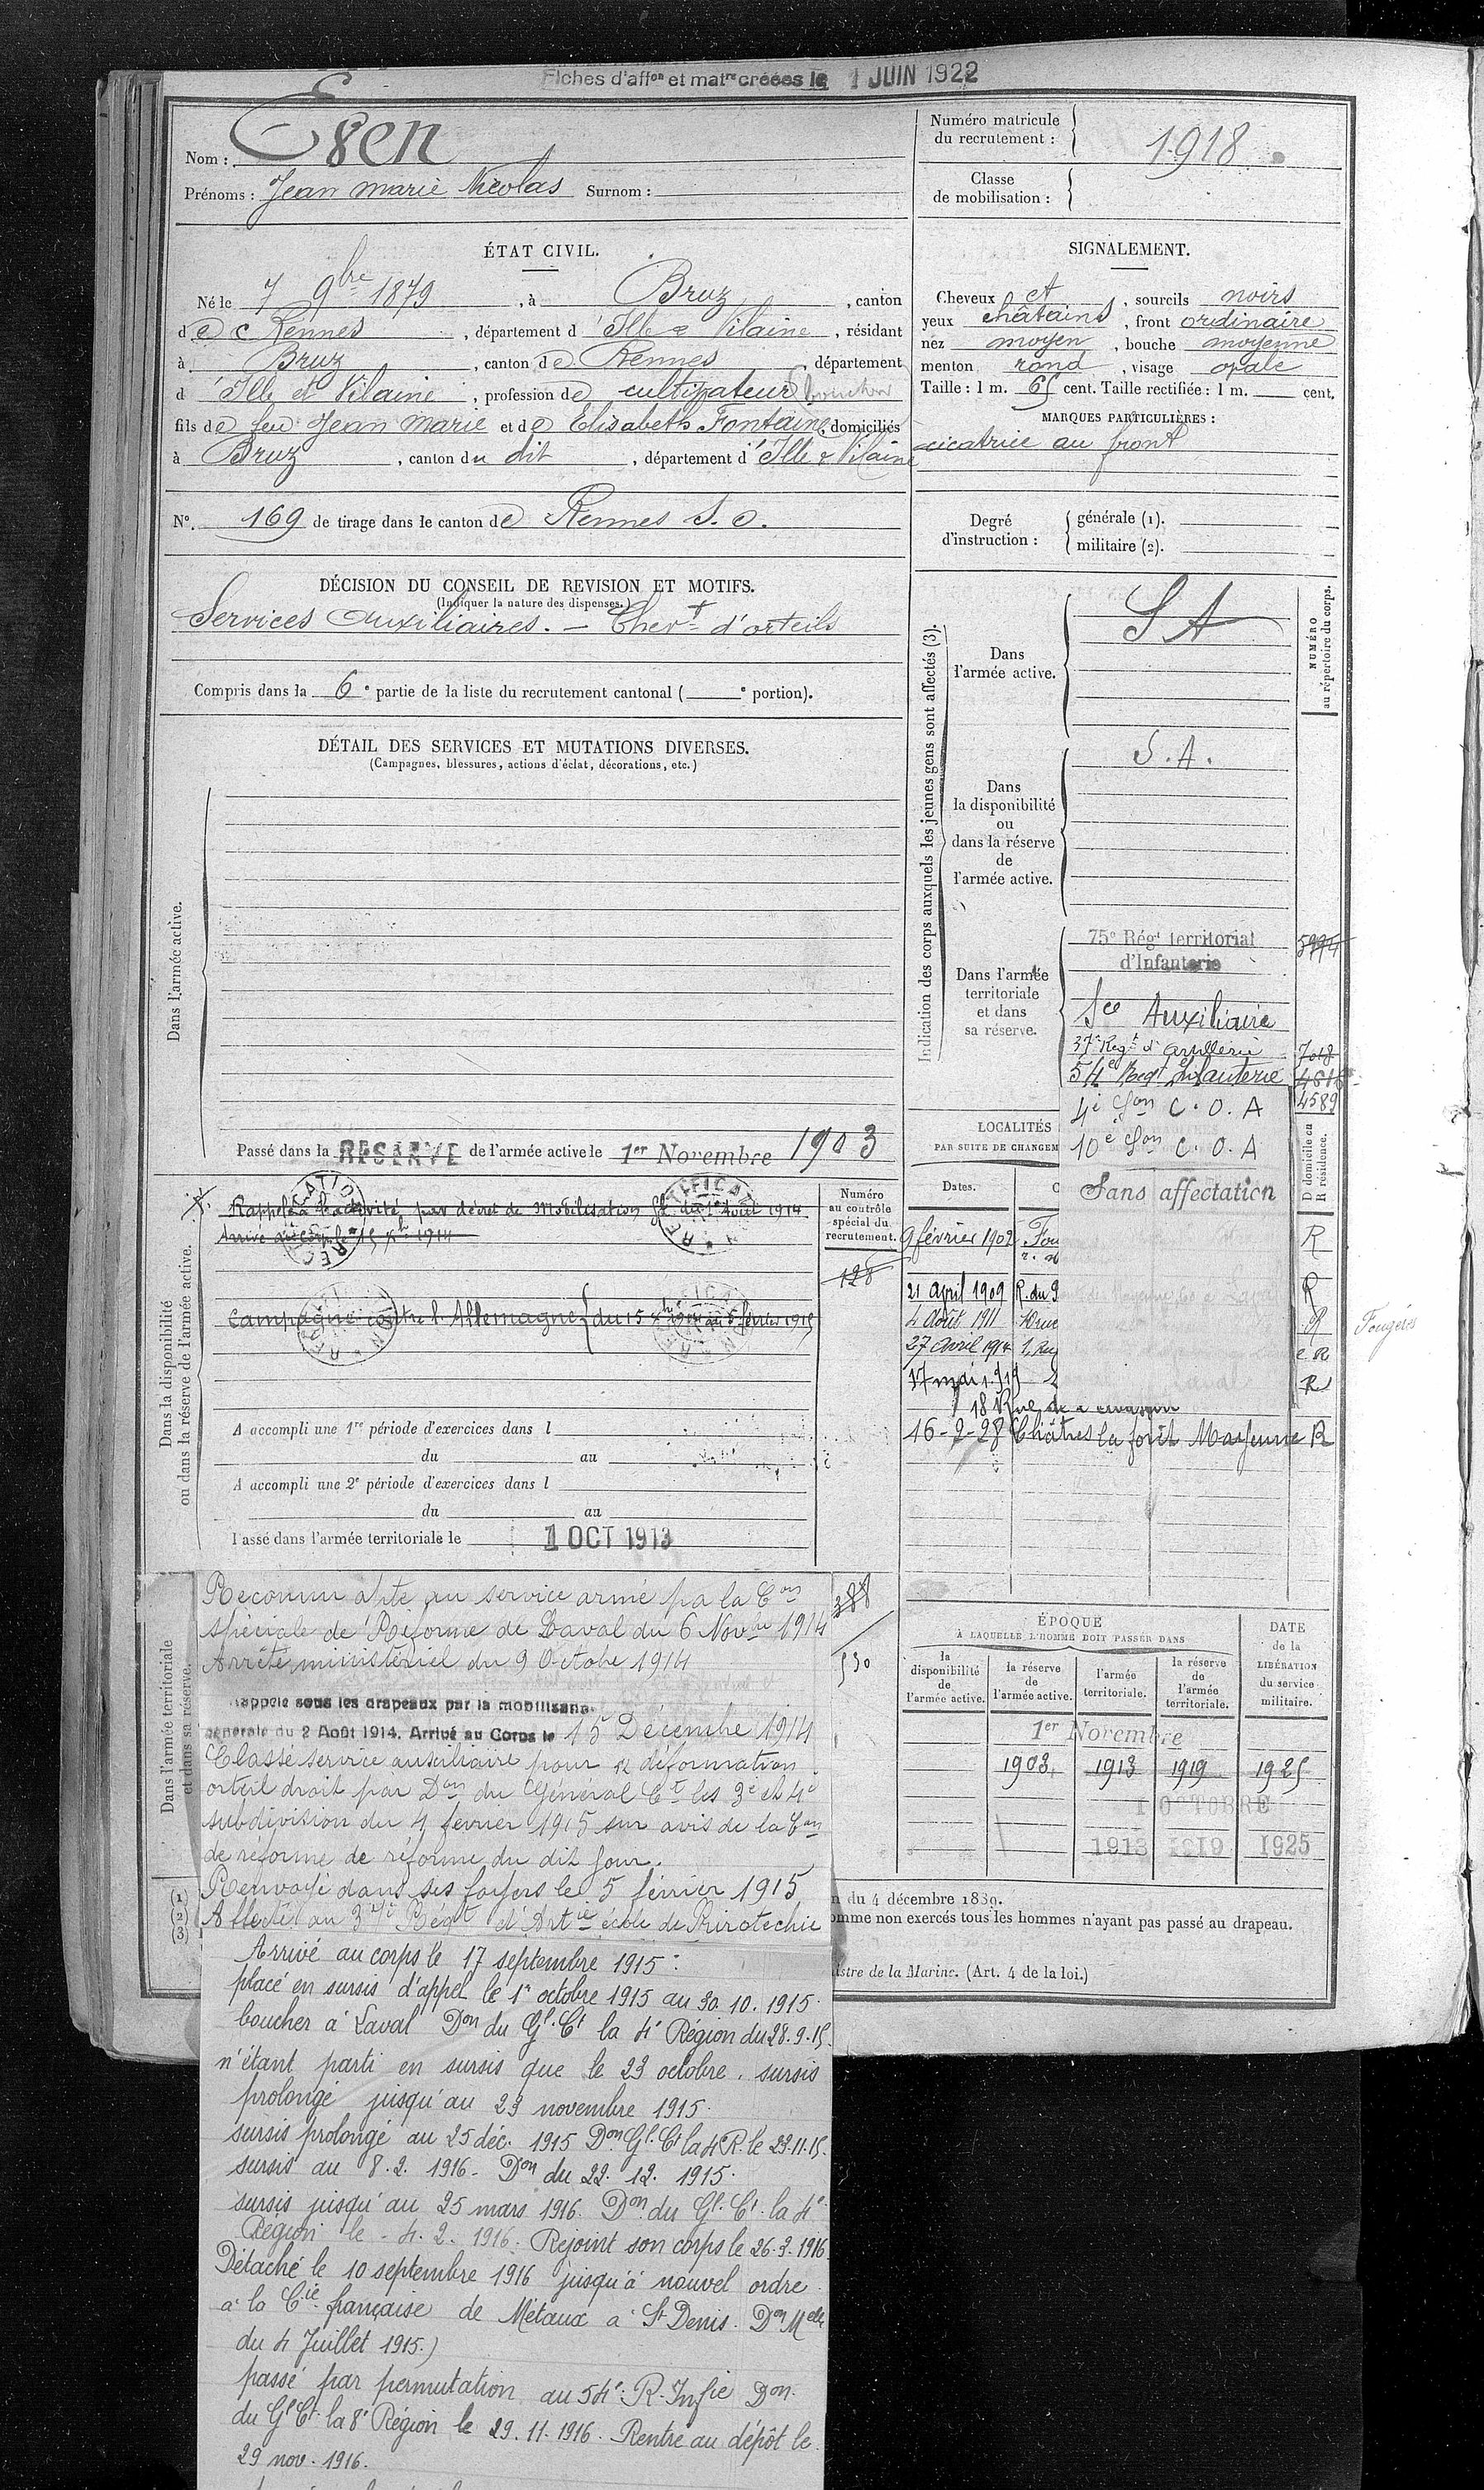 Fiches d'affon et matre créées le 1 JUIN 1922
Nom : Egen
Prénoms : Jean marie Nicolas Surnom :
Numéro matricule
du recrutement : 1918
Classe
de mobilisation :
ÉTAT CIVIL.
Né le 7 9bre 1879, à Bruz, canton
de Rennes, département d'Ille & Vilaine, résidant
à Bruz, canton de Rennes, département
d'Ille et Vilaine, profession de cultivateur
fils de feu Jean Marie et de Elisabeth Fontaine, domiciliés
à Bruz, canton du dit, département d'Ille & Vilaine
N° 169 de tirage dans le canton de Rennes S. O.
SIGNALEMENT.
Cheveux et, sourcils noirs
yeux châtains, front ordinaire
nez moyen, bouche moyenne
menton rond, visage ovale
Taille : 1 m. 65 cent. Taille rectifiée : 1 m. cent.
MARQUES PARTICULIÈRES :
cicatrice au front
Degré
d'instruction :
générale (1).
militaire (2).
DÉCISION DU CONSEIL DE REVISION ET MOTIFS.
(Indiquer la nature des dispenses.)
Services Auxiliaires. — Chevt d'orteils
Compris dans la 6e partie de la liste du recrutement cantonal ( e portion).
DÉTAIL DES SERVICES ET MUTATIONS DIVERSES.
(Campagnes, blessures, actions d'éclat, décorations, etc.)
Dans l'armée active.
Passé dans la RESERVE de l'armée active le 1er Novembre 1903
Indication des corps auxquels les jeunes gens sont affectés (3).
NUMÉRO
au répertoire du corps.
Dans
l'armée active.
S A
Dans
la disponibilité
ou
dans la réserve
de
l'armée active.
S. A.
Dans l'armée
territoriale
et dans
sa réserve.
75e Régt territorial
d'Infanterie
5994
Sce Auxiliaire
37e Regt d'artillerie 7018
54e Regt Infanterie
4589
4e Son C. O. A
10e Son C. O. A
Sans affectation
LOCALITÉS
PAR SUITE DE CHANGEM
Dates.
D domicile ou
R résidence.
9 février 1902 Fou R
21 April 1909 R. du R
4 Août 1911 R
27 Avril 1914 R
17 mai 1919 R
18 Rue de
16-2-28 Châtres la forêt Mayenne R
Fougères
Dans la disponibilité
ou dans la réserve de l'armée active.
Rappelé à l'activité par décret de Mobilisation Gle du 1er Août 1914
Arrivé au corps le 15 Xbre 1914
Campagne contre l'Allemagne du 15 Xbre 1914 au 5 février 1915
RECTIFICATION
Numéro
au contrôle
spécial du
recrutement.
128
A accompli une 1re période d'exercices dans l
du au
A accompli une 2e période d'exercices dans l
du au
Passé dans l'armée territoriale le 1 OCT 1913
Dans l'armée territoriale
et dans sa réserve.
388
530
Reconnu apte au service armé pa la Con
spéciale de Réforme de Laval du 6 Novbre 1914
Arrêté ministériel du 9 Octobe 1914
Rappelé sous les drapeaux par la mobilisation
générale du 2 Août 1914. Arrivé au Corps le 15 Décembre 1914
Classé service auxiliaire pour déformation
orteil droit par Don du Général Ct les 3e et 4e
subdivision du 4 février 1915 sur avis de la Con
de réforme de réforme du dit jour.
Renvoyé dans ses foyers le 5 février 1915
Affecté au 37e Régt d'Artie école de Pirotechie
Arrivé au corps le 17 septembre 1915 :
placé en sursis d'appel le 1er octobre 1915 au 30. 10. 1915.
boucher à Laval Don du Gl. Ct la 4e Région du 28.9.15.
n'étant parti en sursis que le 23 octobre. sursis
prolongé jusqu'au 23 novembre 1915.
sursis prolongé au 25 déc. 1915 Don Gl. Ct la 4e R. le 23.11.15.
sursis au 8. 2. 1916 - Don du 22. 12. 1915.
sursis jusqu'au 25 mars 1916. Don du Gl. Ct. la 4e
Région le - 4. 2. 1916. Rejoint son corps le 26.3.1916.
Détaché le 10 septembre 1916 jusqu'à nouvel ordre
à la Cie française de Métaux à St Denis. Don Melle
du 4 Juillet 1915.)
passé par permutation au 54e R. Infie Don.
du Gl Ct. la 8e Région le 29. 11. 1916. Rentré au dépôt le
29 nov. 1916.
ÉPOQUE
À LAQUELLE L'HOMME DOIT PASSER DANS
DATE
de la
LIBÉRATION
du service
militaire.
la
disponibilité
de
l'armée active.
la réserve
de
l'armée active.
l'armée
territoriale.
la réserve
de
l'armée
territoriale.
1er Novembre
1903 1913 1919 1925
1 OCTOBRE
1913 1919 1925
(1)
(2)
(3)
n du 4 décembre 1889.
omme non exercés tous les hommes n'ayant pas passé au drapeau.
istre de la Marine. (Art. 4 de la loi.)